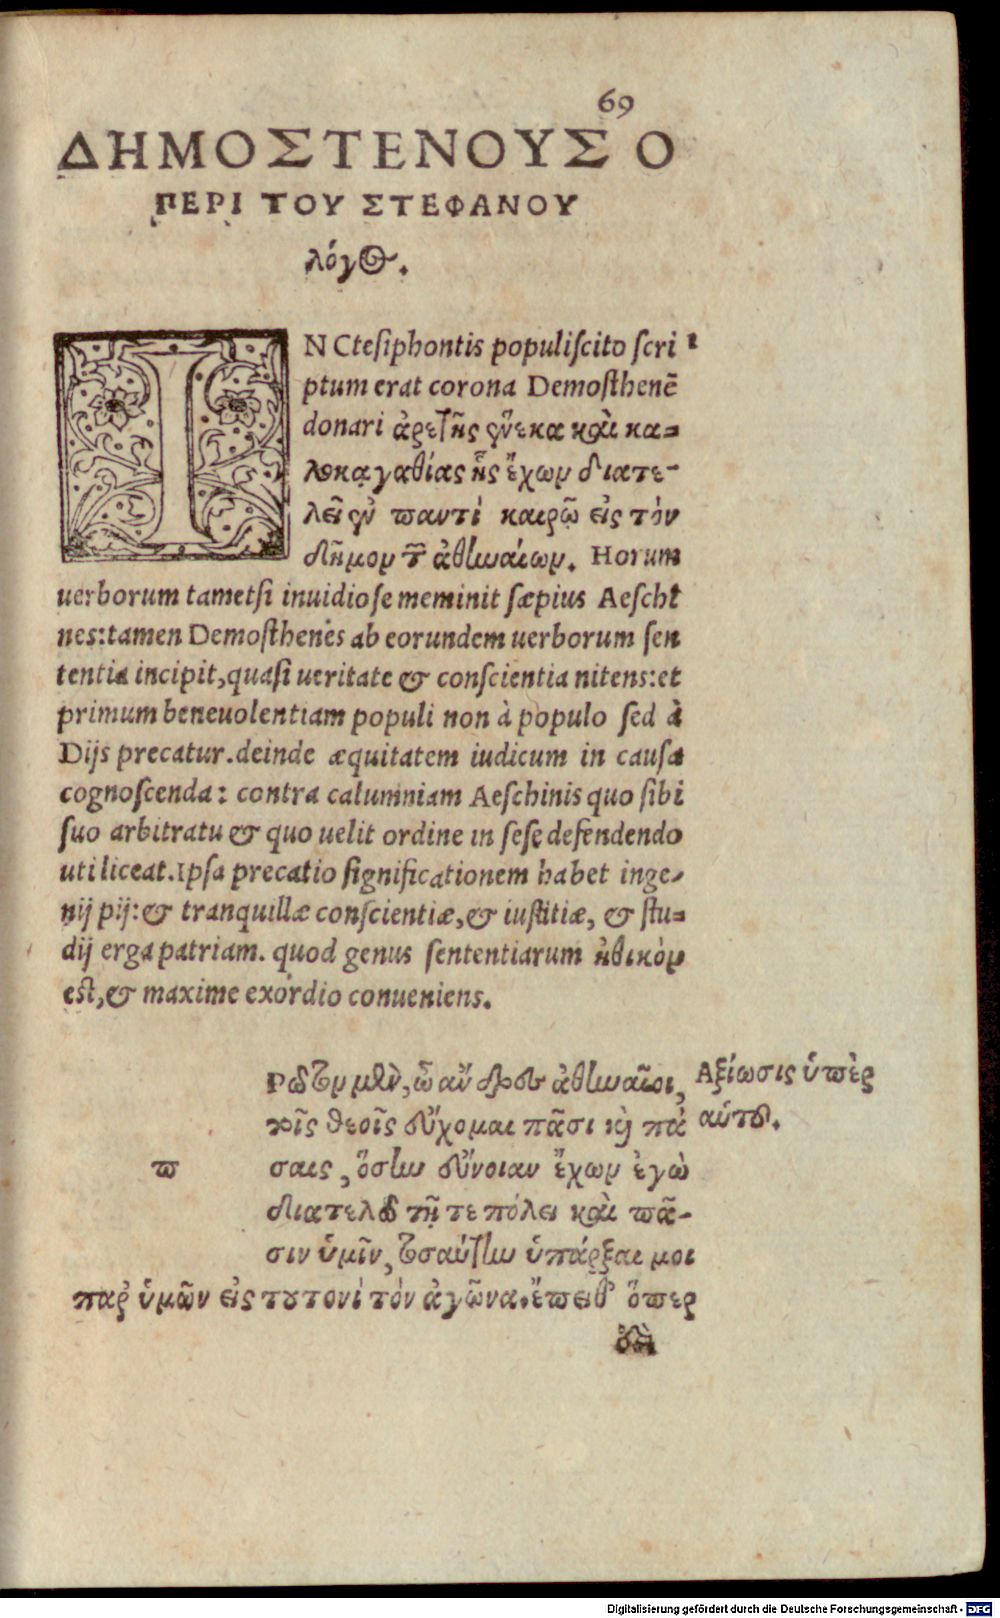 69
ΔΗΜΟΣΤΕΝΟΥΣ Ο
ΠΕΡΙ ΤΟΥ ΣΤΕΦΑΝΟΥ
λόγος.
IN Ctesiphontis populiscito scri 1
ptum erat corona Demosthenē
donari ἀρετῆς ἕνεκα καὶ κα=
λοκαγαθίας ἧς ἔχων διατε-
λεῖ ἐν παντὶ καιρῷ εἰς τὸν
δῆμον τῶν ἀθηναίων. Horum
uerborum tametsi inuidiose meminit sæpius Aeschi
nes: tamen Demosthenes ab eorundem uerborum sen
tentia incipit, quasi ueritate & conscientia nitens: et
primum beneuolentiam populi non à populo sed à
Dijs precatur. deinde æquitatem iudicum in causa
cognoscenda: contra calumniam Aeschinis quo sibi
suo arbitratu & quo uelit ordine in sese defendendo
uti liceat. Ipsa precatio significationem habet inge-
nij pij: & tranquillæ conscientiæ, & iustitiæ, & stu=
dij erga patriam. quod genus sententiarum ἠθικὸν
est, & maxime exordio conueniens.
Ρῶτον μὲν, ὦ ἄνδρες ἀθηναῖοι, Αξίωσις ὑπὲρ
τοῖς θεοῖς εὔχομαι πᾶσι καὶ πά αὑτοῦ.
π σαις, ὅσην εὔνοιαν ἔχων ἐγὼ
διατελῶ τῇ τε πόλει καὶ πᾶ-
σιν ὑμῖν, τοσαύτην ὑπάρξαι μοι
παρ᾽ ὑμῶν εἰς τουτονὶ τὸν ἀγῶνα. ἔπειθ᾽ ὅπερ
Digitalisierung gefördert durch die Deutsche Forschungsgemeinschaft - DFG